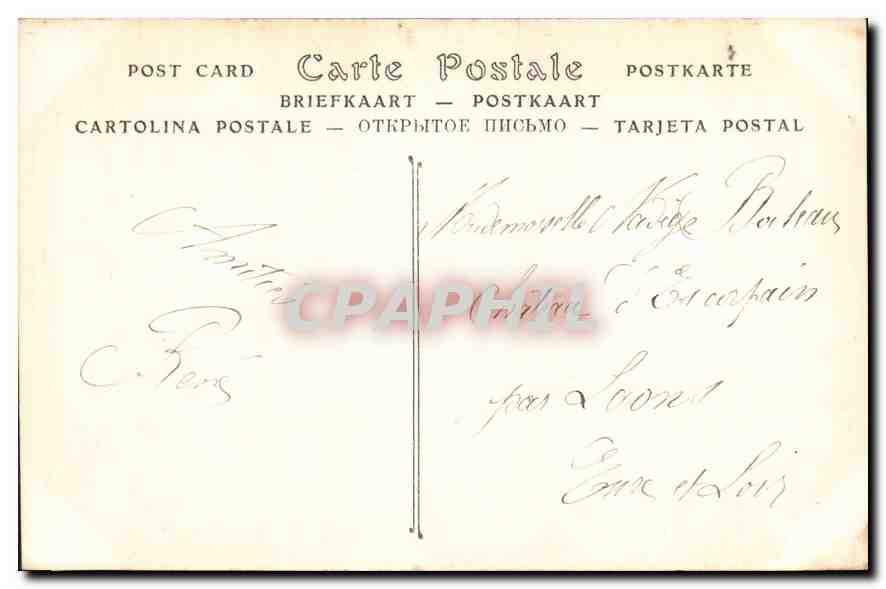 POST CARD Carte Postale POSTKARTE
BRIEFKAART — POSTKAART
CARTOLINA POSTALE — ОТКРЫТОЕ ПИСЬМО — TARJETA POSTAL
Amitiés
René
Mademoiselle Nadège
d'Escorpain
par Laons
Eure et Loir
CPAPHIL